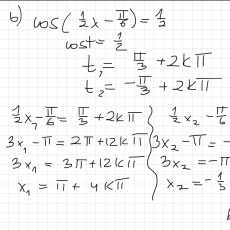 b) cos(1/2 x - π/6) = 1/2
cos t = 1/2
t₁ = π/3 + 2kπ
t₂ = -π/3 + 2kπ
1/2 x₁ - π/6 = π/3 + 2kπ
3x₁ - π = 2π + 12kπ
3x₁ = 3π + 12kπ
x₁ = π + 4kπ
1/2 x₂ - π/6
3x₂ - π = -
3x₂ = -π
x₂ = -1/3